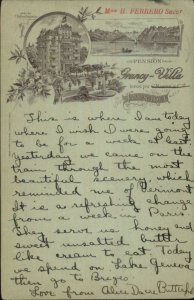 Mme H. FERRERO Succr
PENSION
Grancy-Villa
This is where I am today
where I wish I were going
to be for a week at least
yesterday we came on the
train through the most
beautiful scenery which
reminded me of Vermont
It is a refreshing change
from a week in Paris
They serve us honey and
sweet unsalted butter
like cream to eat. Today
we spend on Lake Geneva
then go to Brezio
Love from Alice Dare